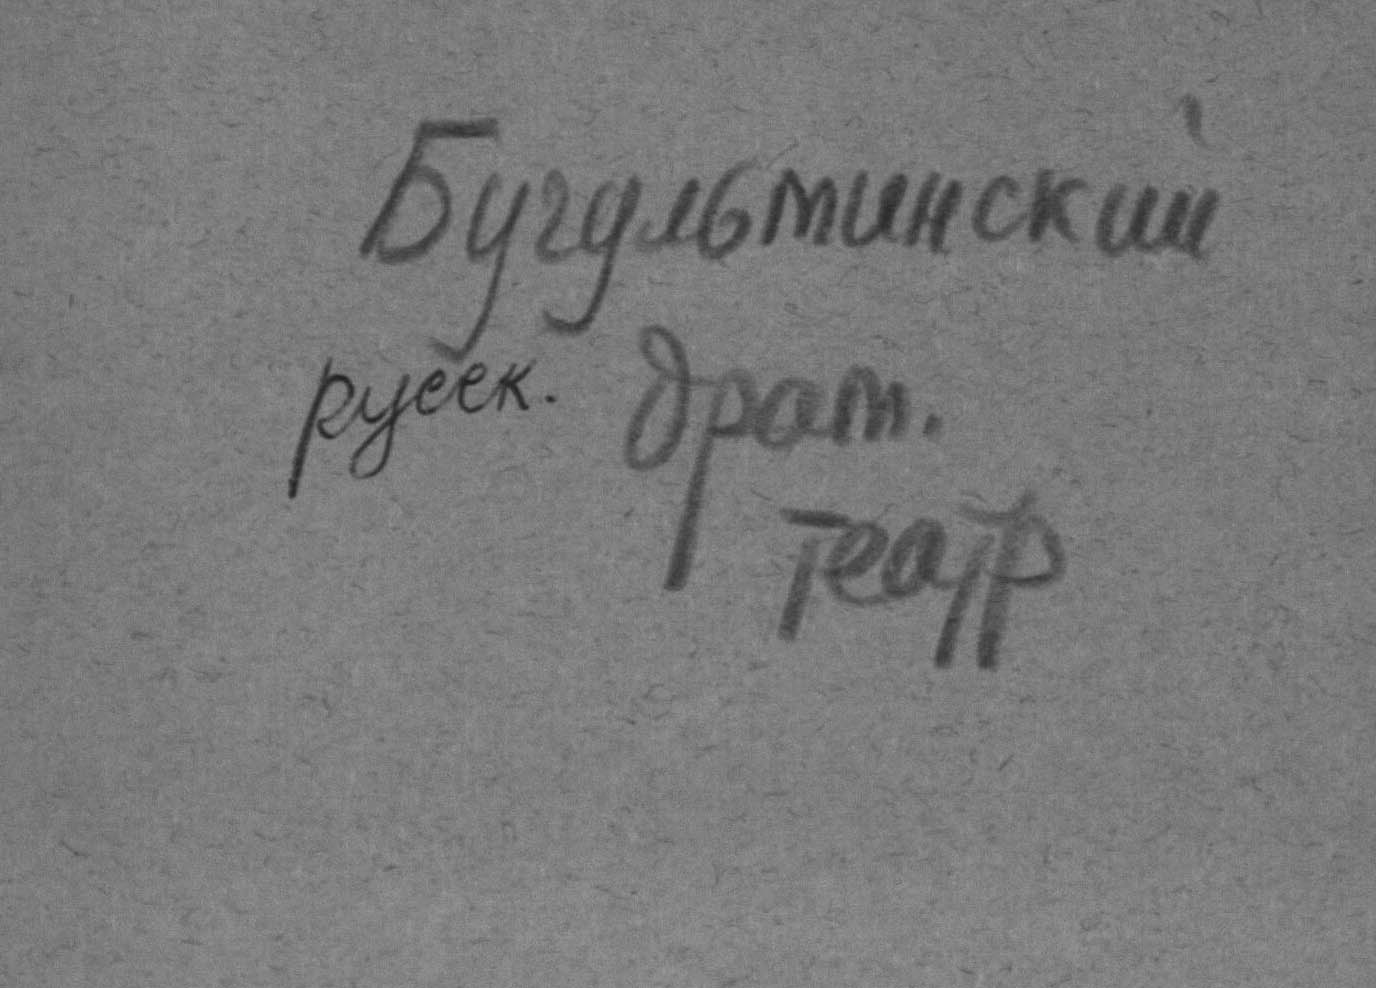 Бугульминский
русск. драм.
театр